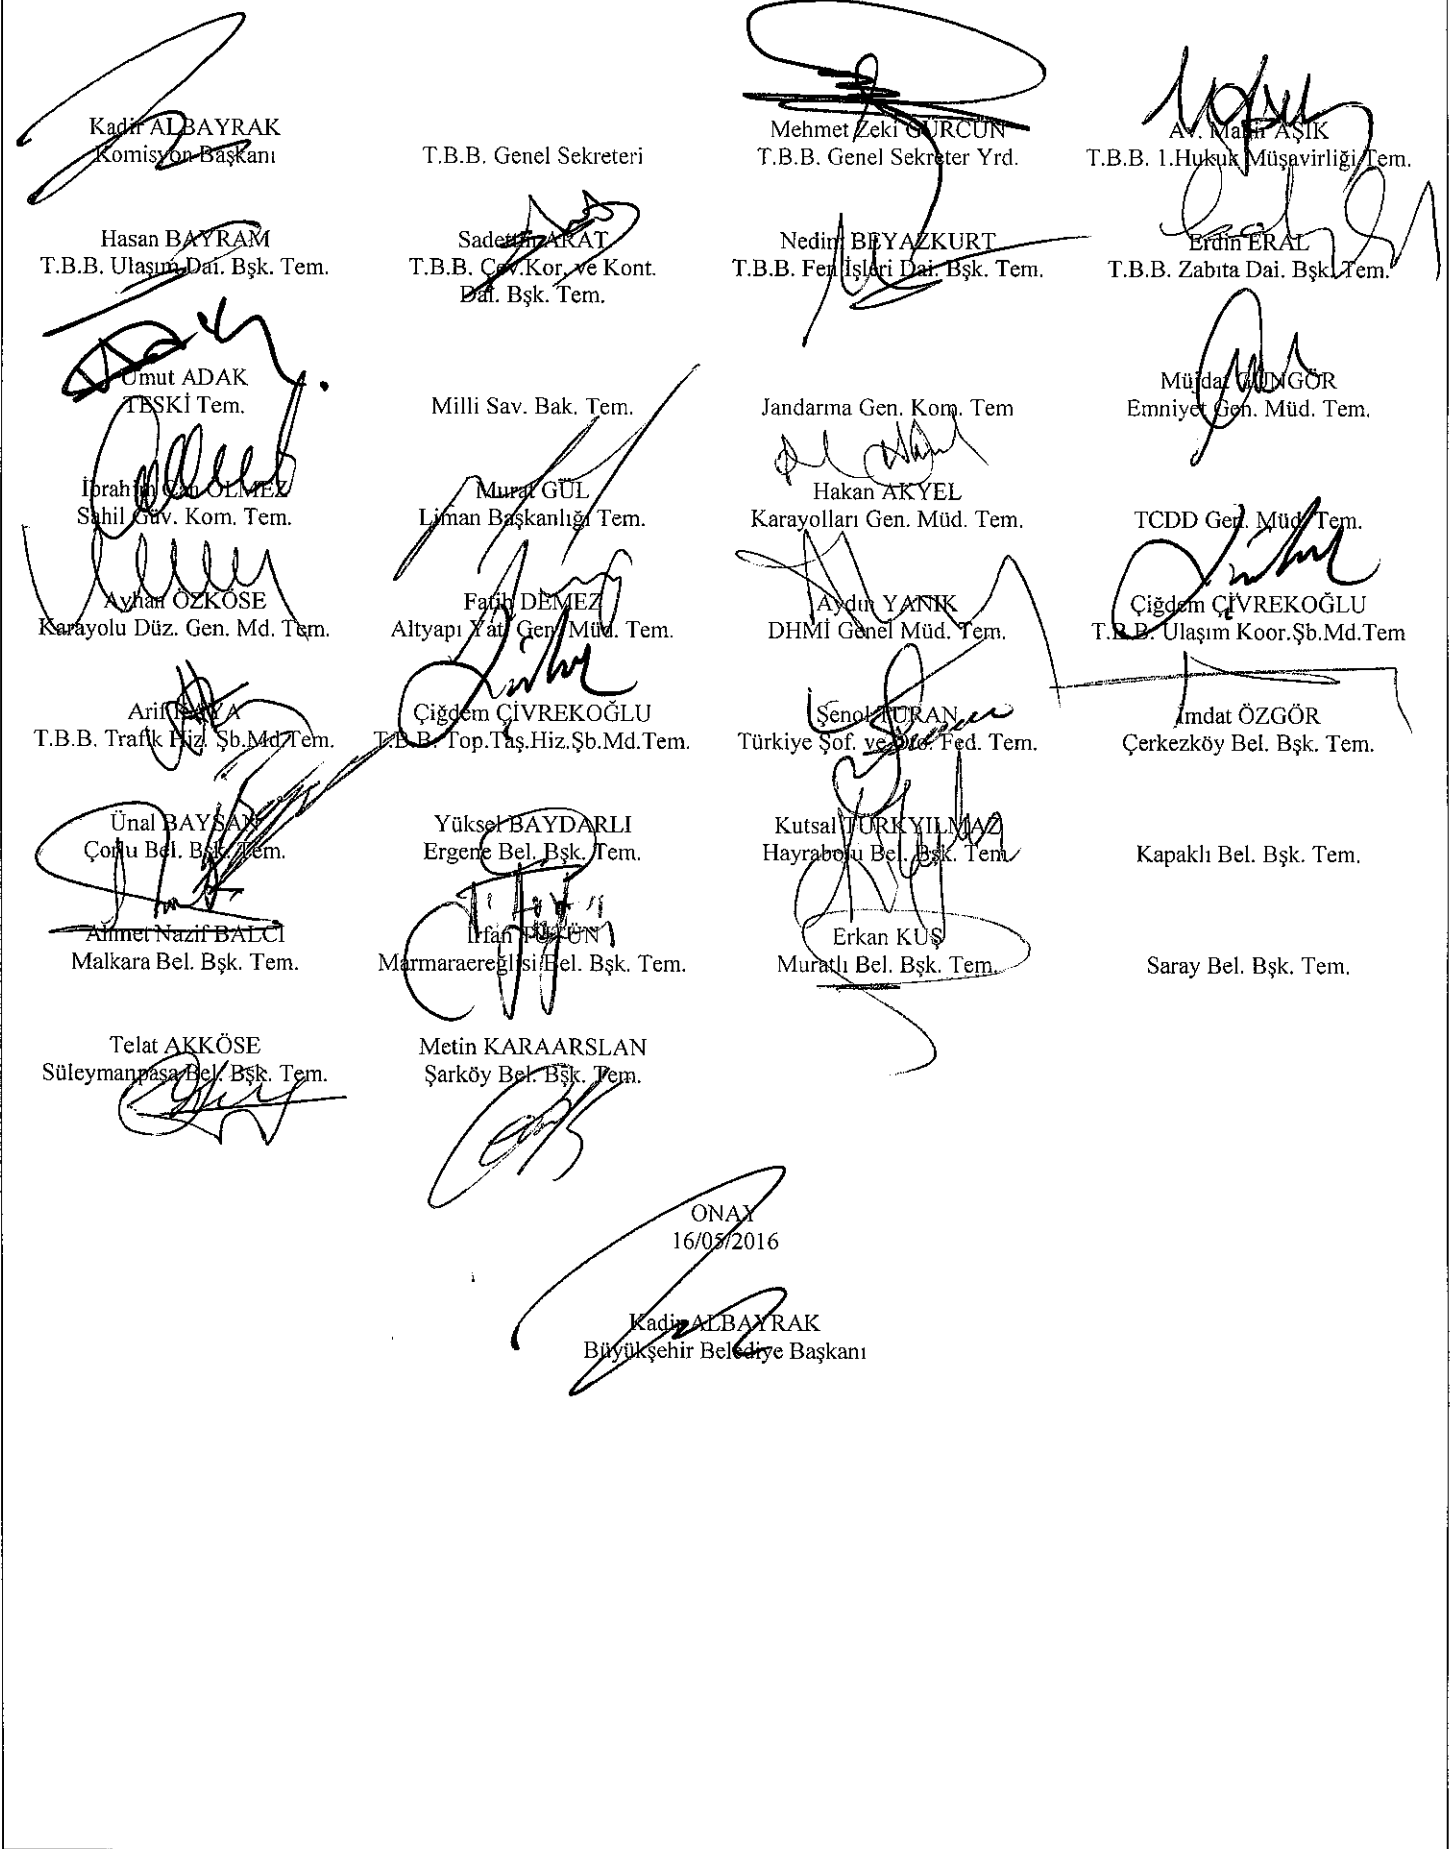 Kadir ALBAYRAK
Komisyon Başkanı
T.B.B. Genel Sekreteri
Mehmet Zeki GÜRCÜN
T.B.B. Genel Sekreter Yrd.
Av. Mahir AŞIK
T.B.B. 1.Hukuk Müşavirliği Tem.
Hasan BAYRAM
T.B.B. Ulaşım Dai. Bşk. Tem.
Sadettin ARAT
T.B.B. Çev.Kor. ve Kont.
Dai. Bşk. Tem.
Nedim BEYAZKURT
T.B.B. Fen İşleri Dai. Bşk. Tem.
Erdin ERAL
T.B.B. Zabıta Dai. Bşk. Tem.
Umut ADAK
TESKİ Tem.
Milli Sav. Bak. Tem.
Jandarma Gen. Kom. Tem
Müjdat GÜNGÖR
Emniyet Gen. Müd. Tem.
İbrahim Can ÖLMEZ
Sahil Güv. Kom. Tem.
Murat GÜL
Liman Başkanlığı Tem.
Hakan AKYEL
Karayolları Gen. Müd. Tem.
TCDD Gen. Müd. Tem.
Ayhan ÖZKÖSE
Karayolu Düz. Gen. Md. Tem.
Fatih DEMEZ
Altyapı Yat. Gen. Müd. Tem.
Aydın YANIK
DHMİ Genel Müd. Tem.
Çiğdem ÇİVREKOĞLU
T.B.B. Ulaşım Koor.Şb.Md.Tem
Arif KAYA
T.B.B. Trafik Hiz. Şb.Md.Tem.
Çiğdem ÇİVREKOĞLU
T.B.B. Top.Taş.Hiz.Şb.Md.Tem.
Şenol TURAN
Türkiye Şof. ve Oto. Fed. Tem.
İmdat ÖZGÖR
Çerkezköy Bel. Bşk. Tem.
Ünal BAYSAN
Çorlu Bel. Bşk. Tem.
Yüksel BAYDARLI
Ergene Bel. Bşk. Tem.
Kutsal TÜRKYILMAZ
Hayrabolu Bel. Bşk. Tem.
Kapaklı Bel. Bşk. Tem.
Ahmet Nazif BALCI
Malkara Bel. Bşk. Tem.
İrfan TÜTÜN
Marmaraereğlisi Bel. Bşk. Tem.
Erkan KUŞ
Muratlı Bel. Bşk. Tem.
Saray Bel. Bşk. Tem.
Telat AKKÖSE
Süleymanpaşa Bel. Bşk. Tem.
Metin KARAARSLAN
Şarköy Bel. Bşk. Tem.
ONAY
16/05/2016
Kadir ALBAYRAK
Büyükşehir Belediye Başkanı